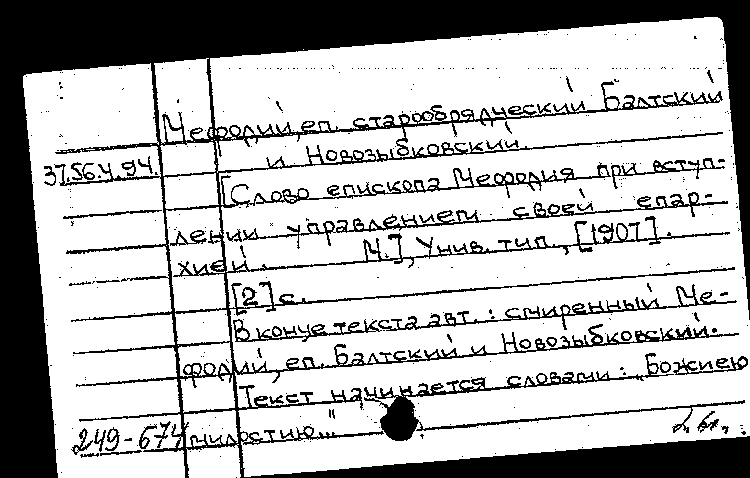 Мефодий, еп. старообрядческий Балтский
и Новозыбковский.
37.564.94.
[Слово епископа Мефодия при вступ-
лении управлением своей епар-
хией. М.], Унив. тип., [1907].
[2] с.
В конце текста авт.: смиренный Ме-
фодий, еп. Балтский и Новозыбковский.
Текст начинается словами: „Божиею
249-674 милостию..."